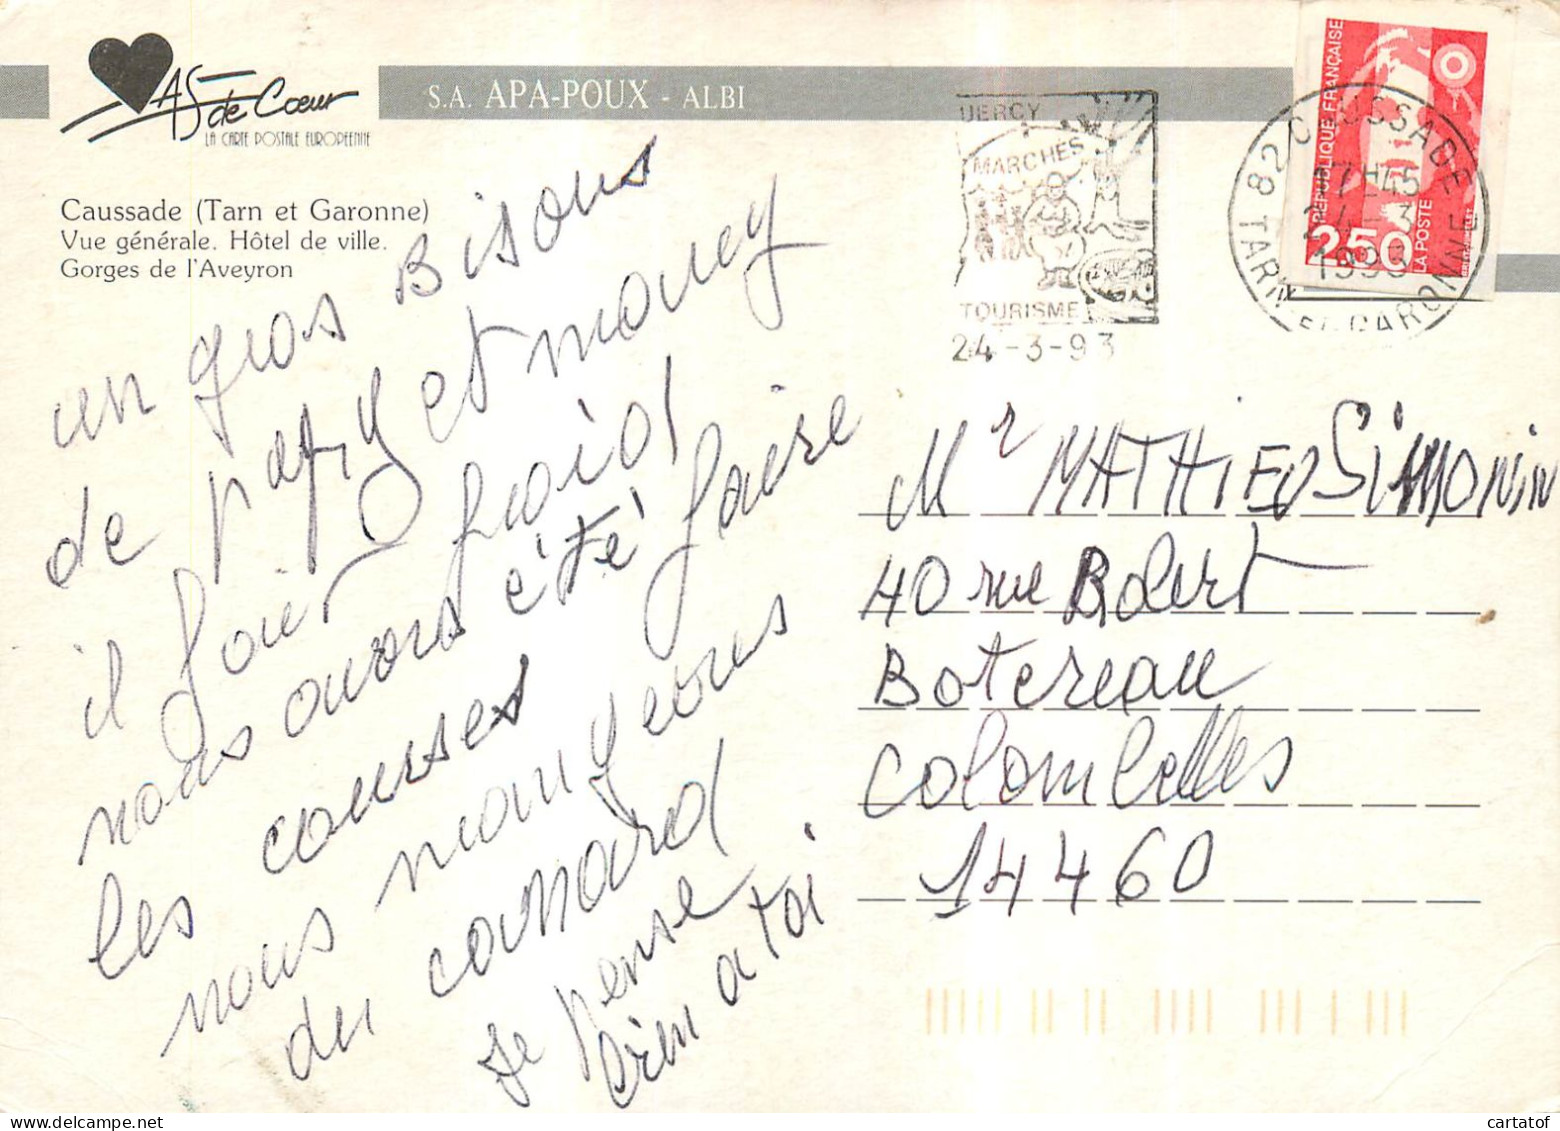 AS de Cœur
LA CARTE POSTALE EUROPÉENNE
S.A. APA-POUX - ALBI
Caussade (Tarn et Garonne)
Vue générale. Hôtel de ville.
Gorges de l'Aveyron
UERCY
MARCHES
TOURISME
24-3-93
RÉPUBLIQUE FRANÇAISE
2,50
LA POSTE
82 CAUSSADE
17H45
24-3
1993
TARN-ET-GARONNE
un gros Bisous
de papy et mamey
il fait froid
nous avons été faire
les courses
nous mangeons
du canard
je pense
bien a toi
Mr MATHIEU SiMONiN
40 rue Robert
Botereau
Colombelles
14460
cartatof